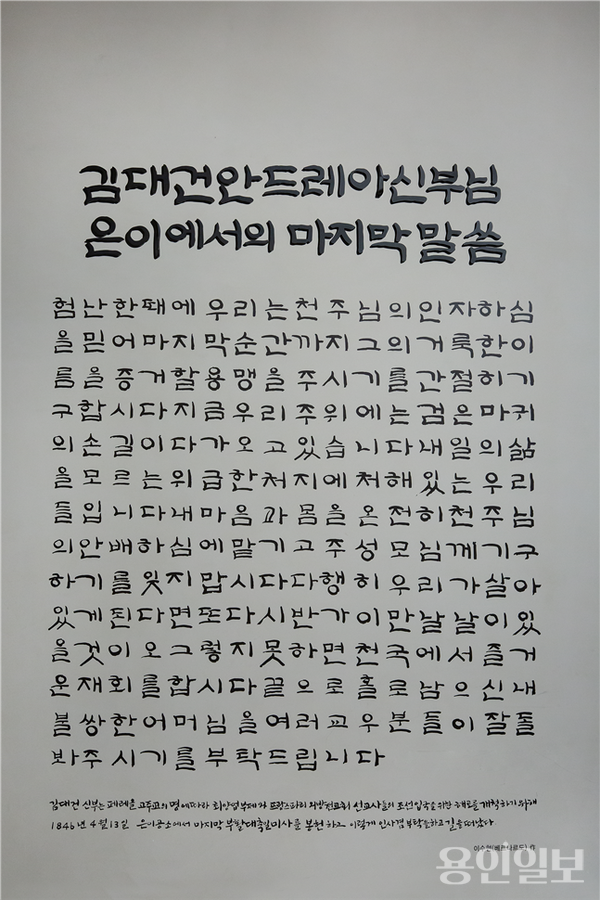 김대건안드레아신부님
은이에서의 마지막말씀
험난한때에우리는천주님의인자하심
을믿어마지막순간까지그의거룩한이
름을증거할용맹을주시기를간절히기
구합시다지금우리주위에는검은마귀
의손길이다가오고있습니다내일의삶
을모르는위급한처지에처해있는우리
들입니다내마음과몸을온전히천주님
의안배하심에맡기고주성모님께기구
하기를잊지맙시다다행히우리가살아
있게된다면또다시반가이만날날이있
을것이오그렇지못하면천국에서즐거
운재회를합시다끝으로홀로남으신내
불쌍한어머님을여러교우분들이잘돌
봐주시기를부탁드립니다
김대건 신부는 페레올 고주교의 명에따라 최양업부제와 프랑스파리 외방전교회 선교사들의 조선입국을 위한 해로를 개척하기 위해
1846년 4월13일 은이공소에서 마지막 부활대축일미사를 봉헌하고 이렇게 인사겸 부탁을하고 길을떠났다
용인일보